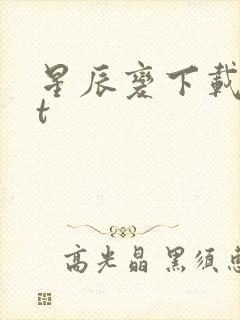 星辰变下載
t
高光晶 黑须